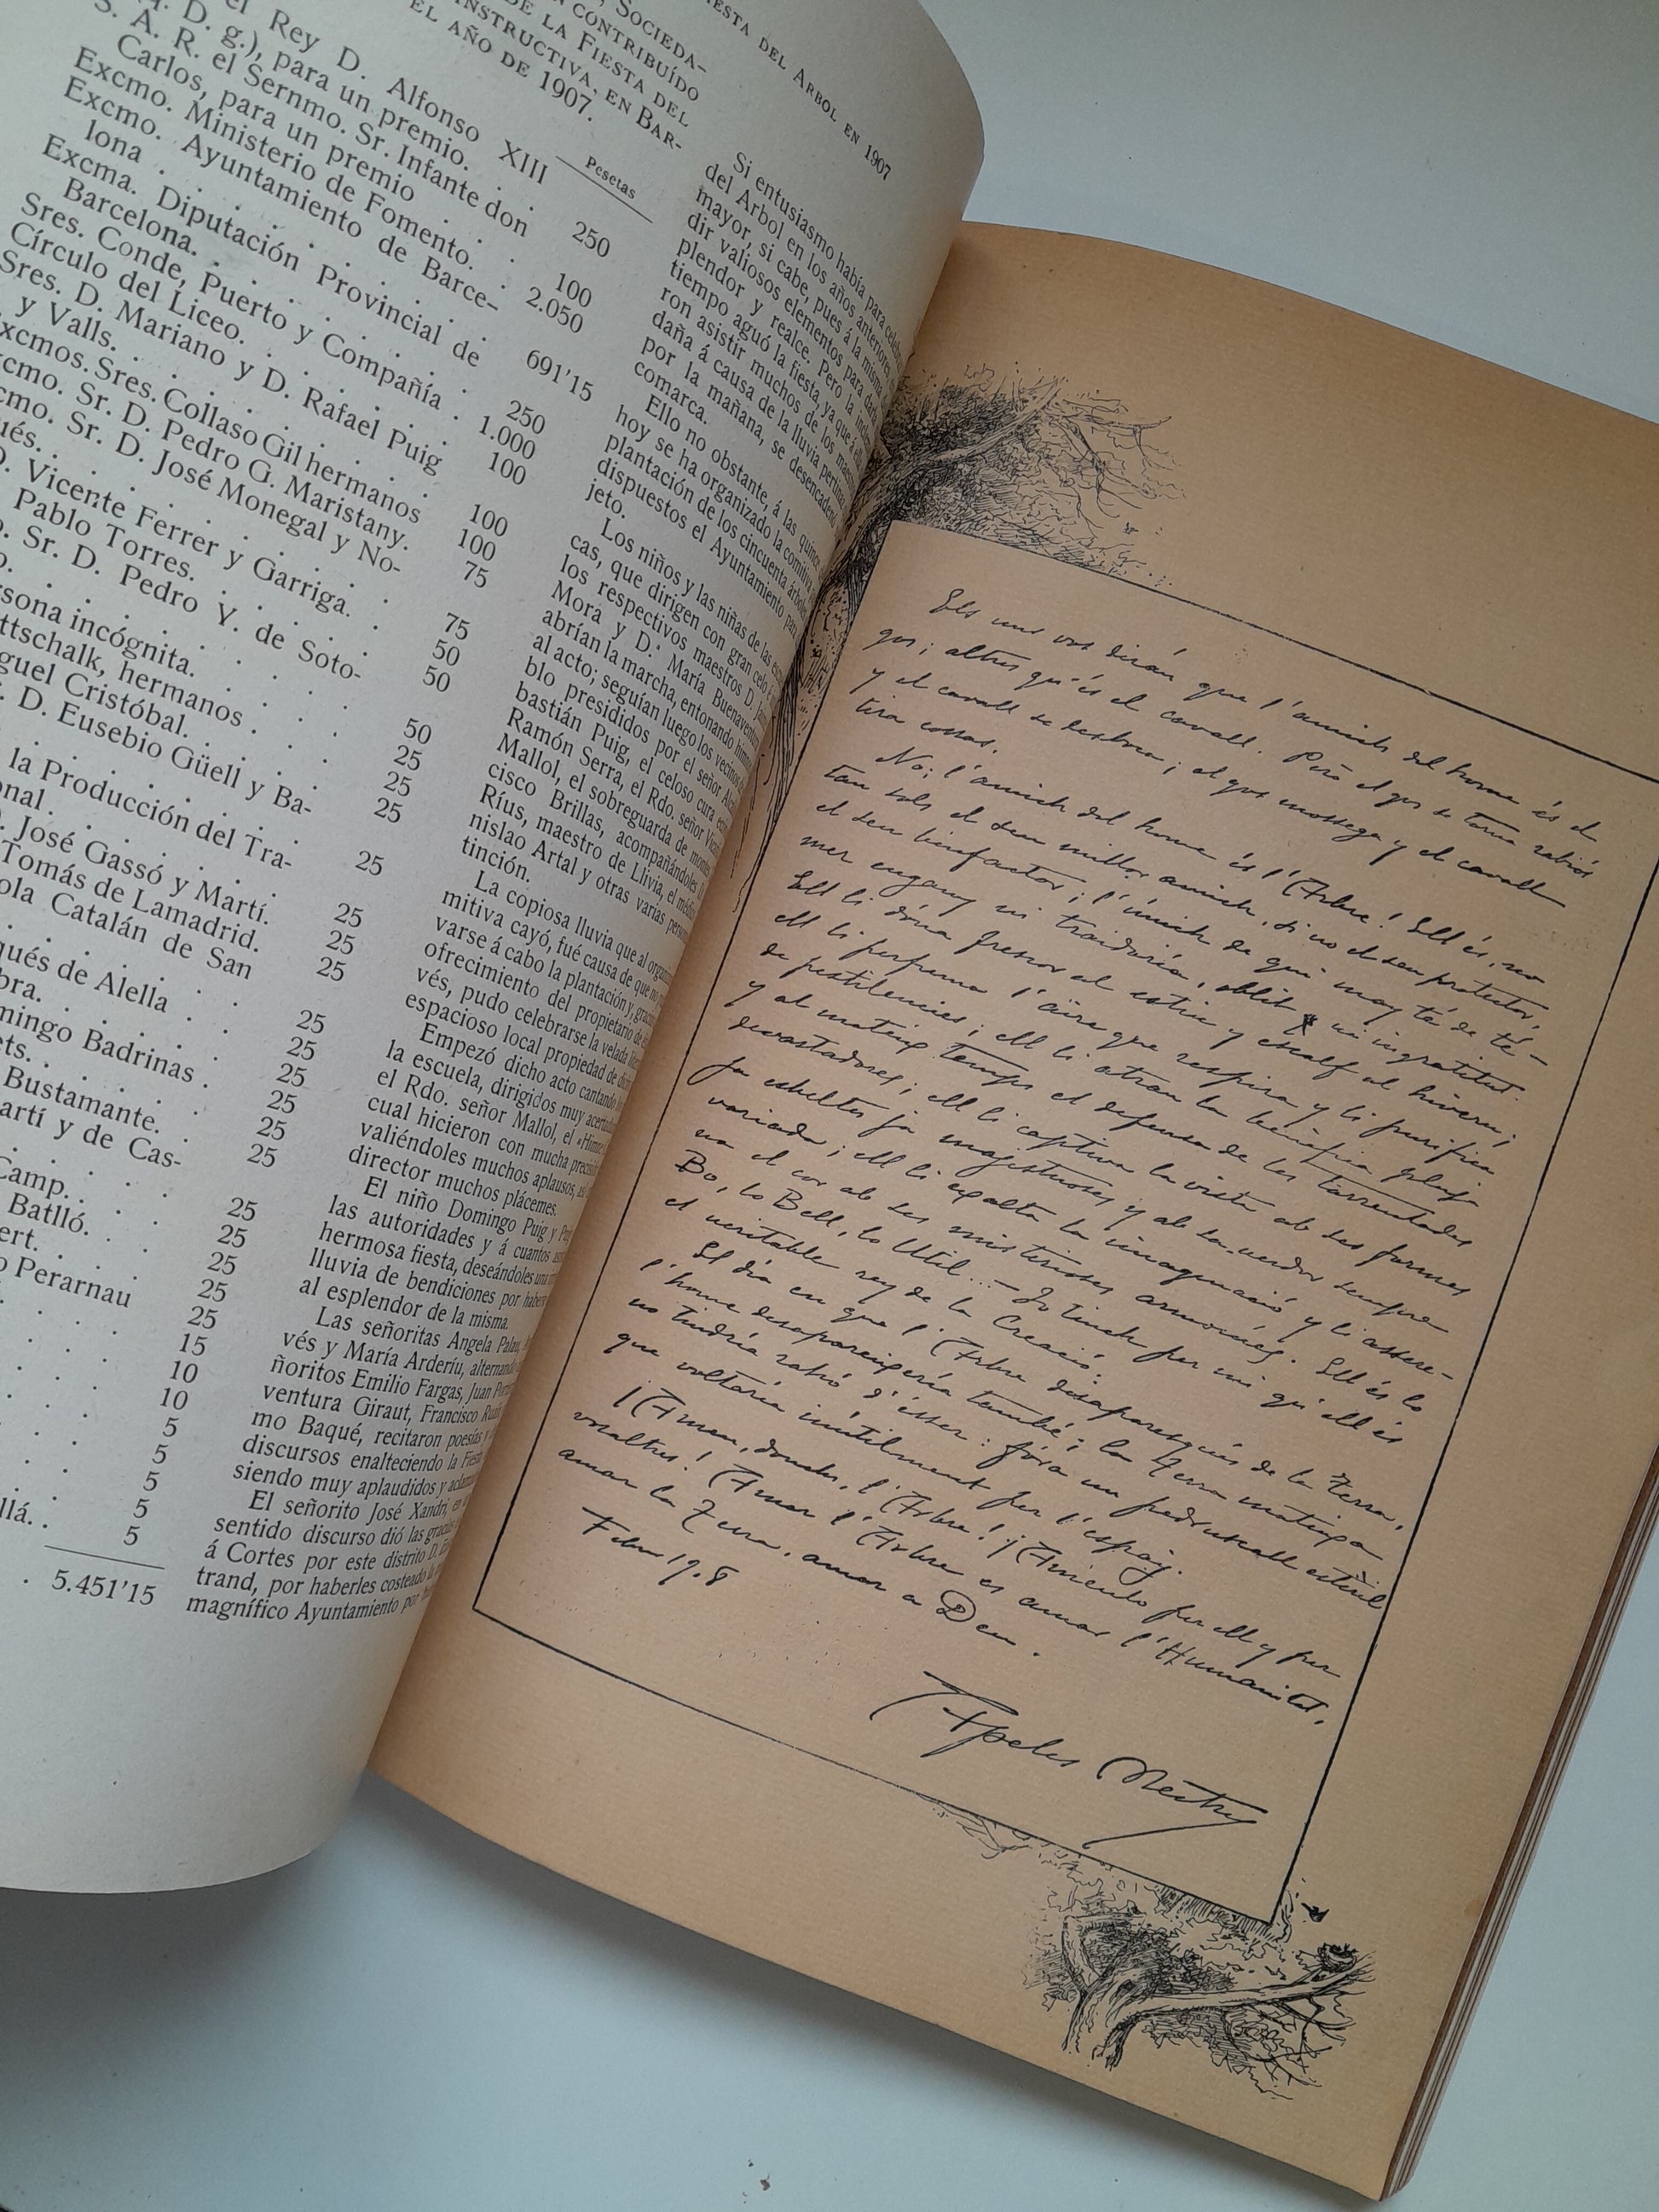 FIESTA DEL ARBOL EN 1907
SOCIEDA-
CONTRIBUÍDO
DE LA FIESTA DEL
INSTRUCTIVA, EN BAR-
EL AÑO DE 1907.
Pesetas
el Rey D. Alfonso XIII
D. g.), para un premio. 250
S. A. R. el Sernmo. Sr. Infante don
Carlos, para un premio 100
Excmo. Ministerio de Fomento. 2.050
Excmo. Ayuntamiento de Barce-
lona 691'15
Excma. Diputación Provincial de
Barcelona. 250
Sres. Conde, Puerto y Compañía 1.000
Círculo del Liceo. 100
Sres. D. Mariano y D. Rafael Puig
y Valls. 100
Excmos. Sres. Collaso Gil hermanos 100
Excmo. Sr. D. Pedro G. Maristany. 75
Excmo. Sr. D. José Monegal y No-
gués. 75
D. Vicente Ferrer y Garriga. 50
Pablo Torres. 50
Sr. D. Pedro Y. de Soto-
50
persona incógnita. 25
hermanos 25
Cristóbal. 25
D. Eusebio Güell y Ba-
25
la Producción del Tra-
25
José Gassó y Martí. 25
Tomás de Lamadrid. 25
Catalán de San
25
de Alella 25
25
Badrinas 25
25
Bustamante. 25
y de Cas-
25
Camp. 25
Batlló. 25
25
Perarnau 25
15
10
10
5
5
5
5
5
5.451'15
Si entusiasmo había para celebrar
del Arbol en los años anteriores,
mayor, si cabe, pues á la misma
dir valiosos elementos para darle
plendor y realce. Pero la
tiempo aguó la fiesta, ya que á ella
ron asistir muchos de los
daña á causa de la lluvia
por la mañana, se desencadenó
comarca.
Ello no obstante, á las quince
hoy se ha organizado la comitiva
plantación de los cincuenta árboles
dispuestos el Ayuntamiento para
jeto.
Los niños y las niñas de las
cas, que dirigen con gran celo
los respectivos maestros D.
Mora y D.ª María Buenaventura
abrían la marcha, entonando himnos
al acto; seguían luego los vecinos
blo presididos por el señor
bastián Puig, el celoso cura
Ramón Serra, el Rdo. señor
Mallol, el sobreguarda de montes
cisco Brillas, acompañándoles
Ríus, maestro de Llivia, el
nislao Artal y otras varias
tinción.
La copiosa lluvia que al
mitiva cayó, fué causa de que no
varse á cabo la plantación y,
ofrecimiento del propietario
vés, pudo celebrarse la velada
espacioso local propiedad de
Empezó dicho acto cantando
la escuela, dirigidos muy
el Rdo. señor Mallol, el
cual hicieron con mucha
valiéndoles muchos aplausos,
director muchos plácemes.
El niño Domingo Puig y
las autoridades y á cuantos
hermosa fiesta, deseándoles una
lluvia de bendiciones por haber
al esplendor de la misma.
Las señoritas Angela
vés y María Arderíu, alternando
ñoritos Emilio Fargas, Juan
ventura Giraut, Francisco
mo Baqué, recitaron poesías y
discursos enalteciendo la Fiesta
siendo muy aplaudidos y
El señorito José Xandri, en
sentido discurso dió las gracias
á Cortes por este distrito D.
trand, por haberles costeado
magnífico Ayuntamiento por
Els uns vos dirán que l'amich del home és el
gos; altres qu'és el cavall. Peró el gos se torna rabiós
y el cavall se desboca; el gos mossega y el cavall
tira cossas.
No; l'amich del home és l'Arbre! Ell és, no
tan sols el seu millor amich, sino el seu protector,
el seu benfactor; l'únich de qui may té de té-
mer engany ni traidoria, oblit ni ingratitut.
Ell li dóna frescor al estiu y escalf al hivern;
ell li perfuma l'aire que respira y li purifica
de pestilencies; ell li atrau la benéfica pluja
y al mateix temps el defensa de les torrentades
devastadores; ell li captiva la vista ab ses formes
ja esbeltes ja majestuoses y ab sa verdor sempre
variada; ell li exalta la imaginació y li assere-
na el cor ab ses misterioses armoníes. Ell és lo
Bo, lo Bell, lo Util... – Jo tinch per mi qu'ell és
el veritable rey de la Creació.
El día en que l'Arbre desaparegués de la Terra,
l'home desapareixería també; la Terra mateixa
no tindría rahó d'ésser: fóra un pedruscall estéril
que voltaría inútilment per l'espay.
¡Ameu, donchs, l'Arbre! ¡Ameulo per ell y per
vosaltres! Amar l'Arbre es amar l'Humanitat,
amar la Terra, amar a Deu.
Febrer 1908
Apeles Mestres